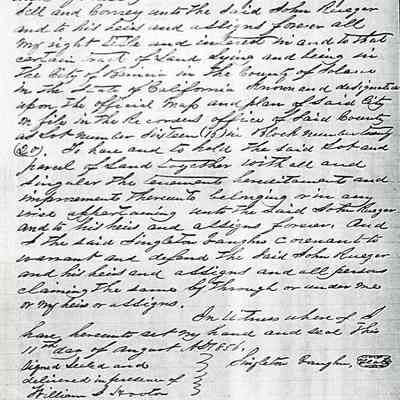 Sell and Convey unto the Said John Rueger
and to his heirs and assigns forever all
My right title and interest in and to that
certain tract of Land lying and being in
The City of Benicia in the County of Solano
in the State of California Known and designated
upon the official Map and plan of Said City
on file in the Recorders office of Said County
as Lot number Sixteen (16) in Block number twenty
(20). To have and to hold the said Lot and
parcel of Land together with all and
Singular the tenements hereditament and
improvements thereunto belonging or in any
wise appertaining unto the Said John Rueger
and to his heirs and assigns forever. And
I the said Singleton Vaughn covenant to
warrant and defend the Said John Rueger
and his heirs and assigns and all persons
claiming the same by through or under me
or my heirs or assigns.
In Witness where of I
have hereunto set my hand and seal this
day of august AD 1851.
Signed Sealed and
delivered in presence of
William S.
Singleton Vaughn Seal